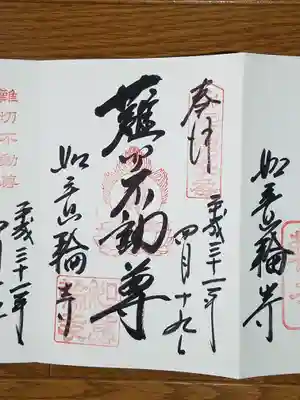 如意輪寺
奉拝
平成三十一年
四月十九日
難切不動尊
如意輪寺
難切不動尊
平成三十一年
四月十九